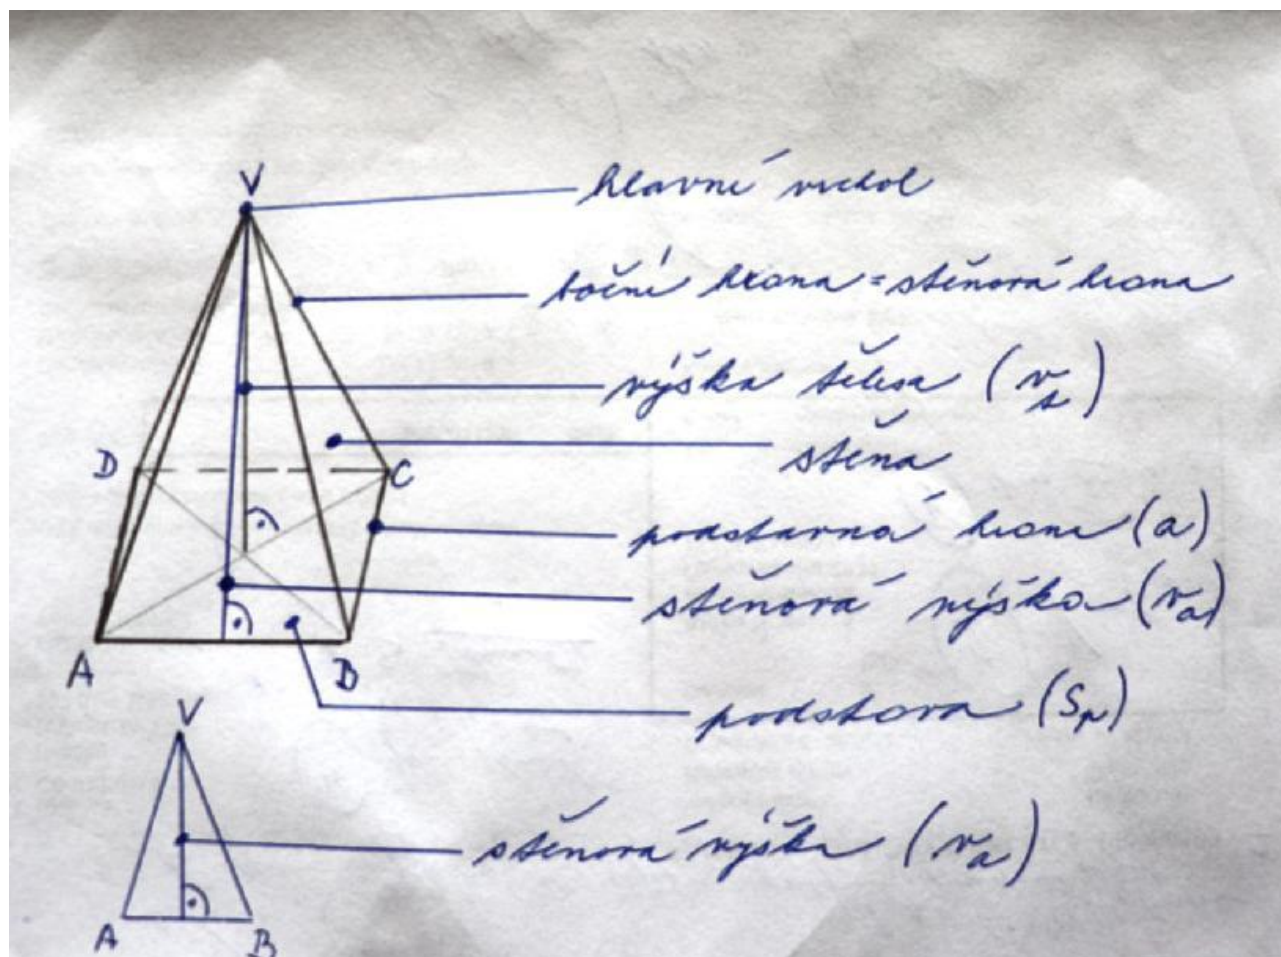 V
hlavní vrchol
boční hrana = stěnová hrana
výška tělesa (vₜ)
stěna
D
C
podstavná hrana (a)
stěnová výška (vₐ)
A
B
podstava (Sₚ)
V
stěnová výška (vₐ)
A
B